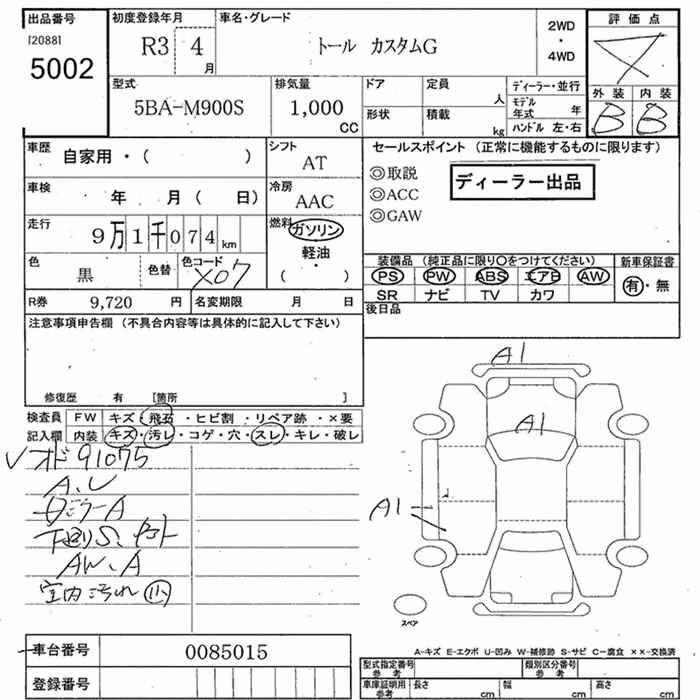 出品番号
[2088]
5002
初度登録年月
R3 4 月
車名・グレード
トール カスタムG
2WD
・
4WD
評価点
外装 内装
B B
型式
5BA-M900S
排気量
1,000 CC
ドア
形状
定員 人
積載 kg
ディーラー・並行
モデル年式 年
ハンドル 左・右
車歴 自家用・( )
シフト
AT
車検 年 月( 日)
冷房
AAC
走行 9万1千074km
燃料
ガソリン
軽油
・
( )
色
黒
色替
色コード
X07
R券 9,720 円
名変期限 月 日
セールスポイント (正常に機能するものに限ります)
◎取説
◎ACC
◎GAW
ディーラー出品
装備品 (純正品に限り〇をつけてください)
PS PW ABS エアB AW
SR ナビ TV カワ
新車保証書
有・無
後日品
注意事項申告欄 (不具合内容等は具体的に記入して下さい)
修復歴 有 [箇所 ]
検査員記入欄
FW キズ・飛石・ヒビ割・リペア跡・×要
内装 キズ・汚レ・コゲ・穴・スレ・キレ・破レ
オド 91075
A、U
ミラーA
下廻りS、
AW、A
室内汚れ
A1
A1
A1
スペア
車台番号 0085015
登録番号
A-キズ E-エクボ U-凹み W-補修跡 S-サビ C-腐食 ××-交換済
型式指定番号 参考
類別区分番号 参考
車庫証明用 参考
長さ cm 幅 cm 高さ cm